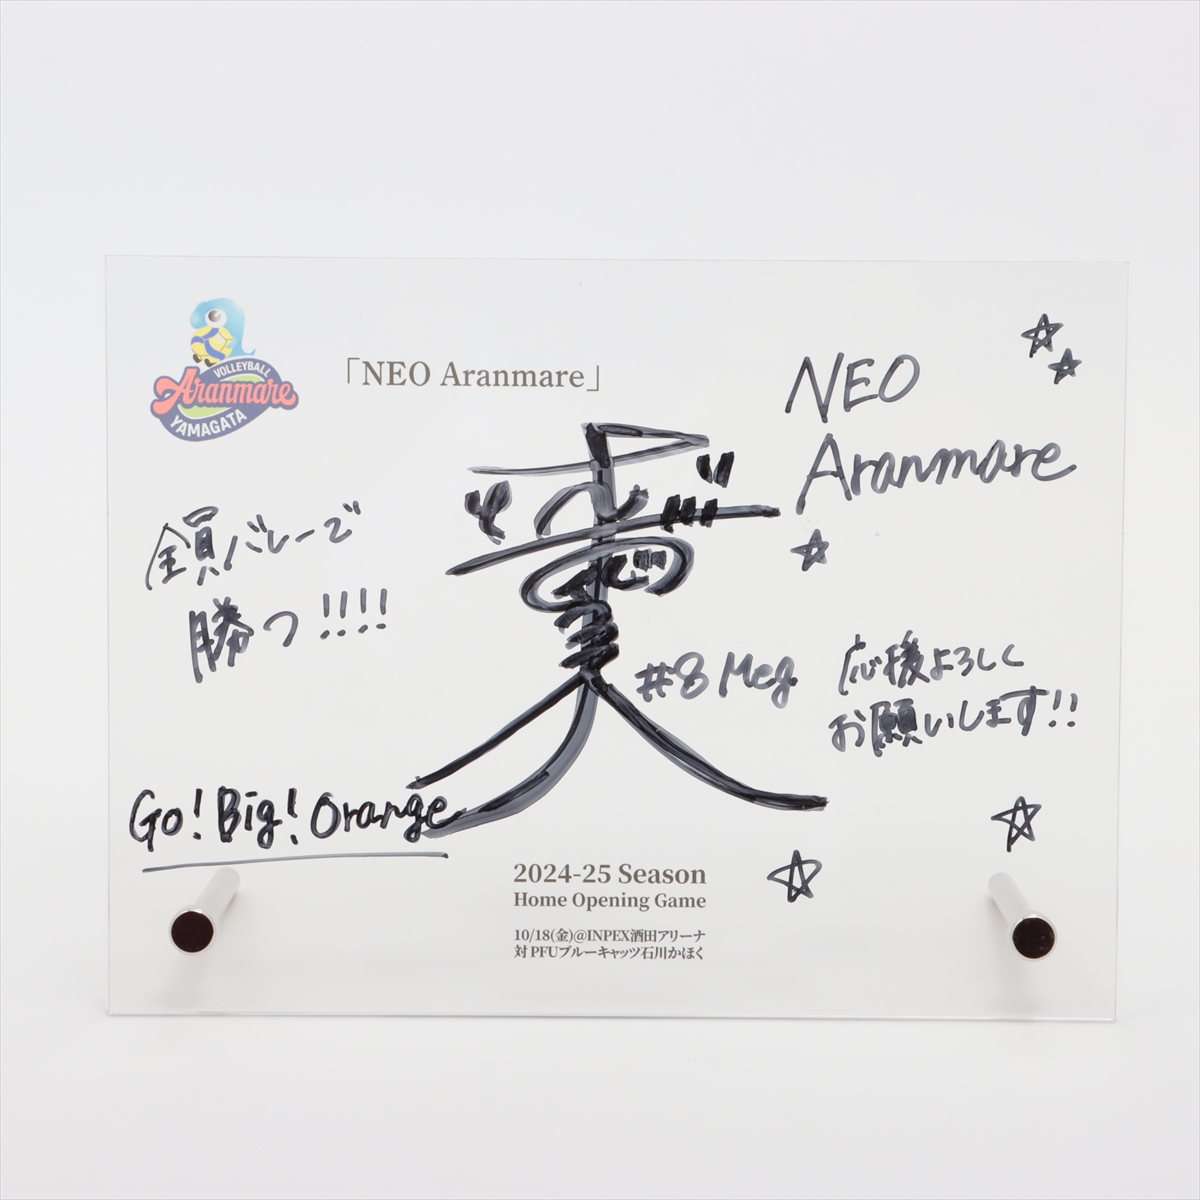 VOLLEYBALL
Aranmare
YAMAGATA
「NEO Aranmare」
NEO
Aranmare
全員バレーで
勝つ!!!!
#8 Meg
応援よろしく
お願いします!!
Go! Big! Orange
2024-25 Season
Home Opening Game
10/18(金)@INPEX酒田アリーナ
対 PFUブルーキャッツ石川かほく